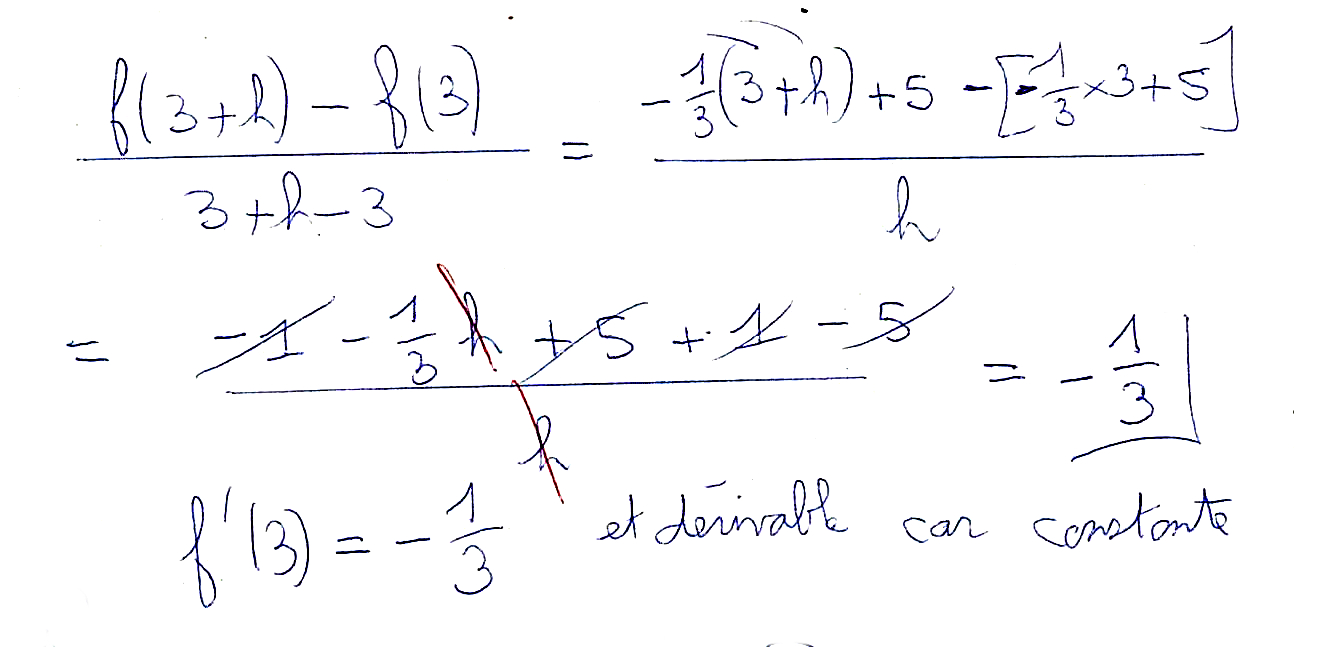 f(3+h) - f(3) / 3+h-3 = -1/3(3+h)+5 - [-1/3×3+5] / h
= -1 - 1/3 h + 5 + 1 - 5 / h = -1/3
f'(3) = -1/3 et dérivable car constante